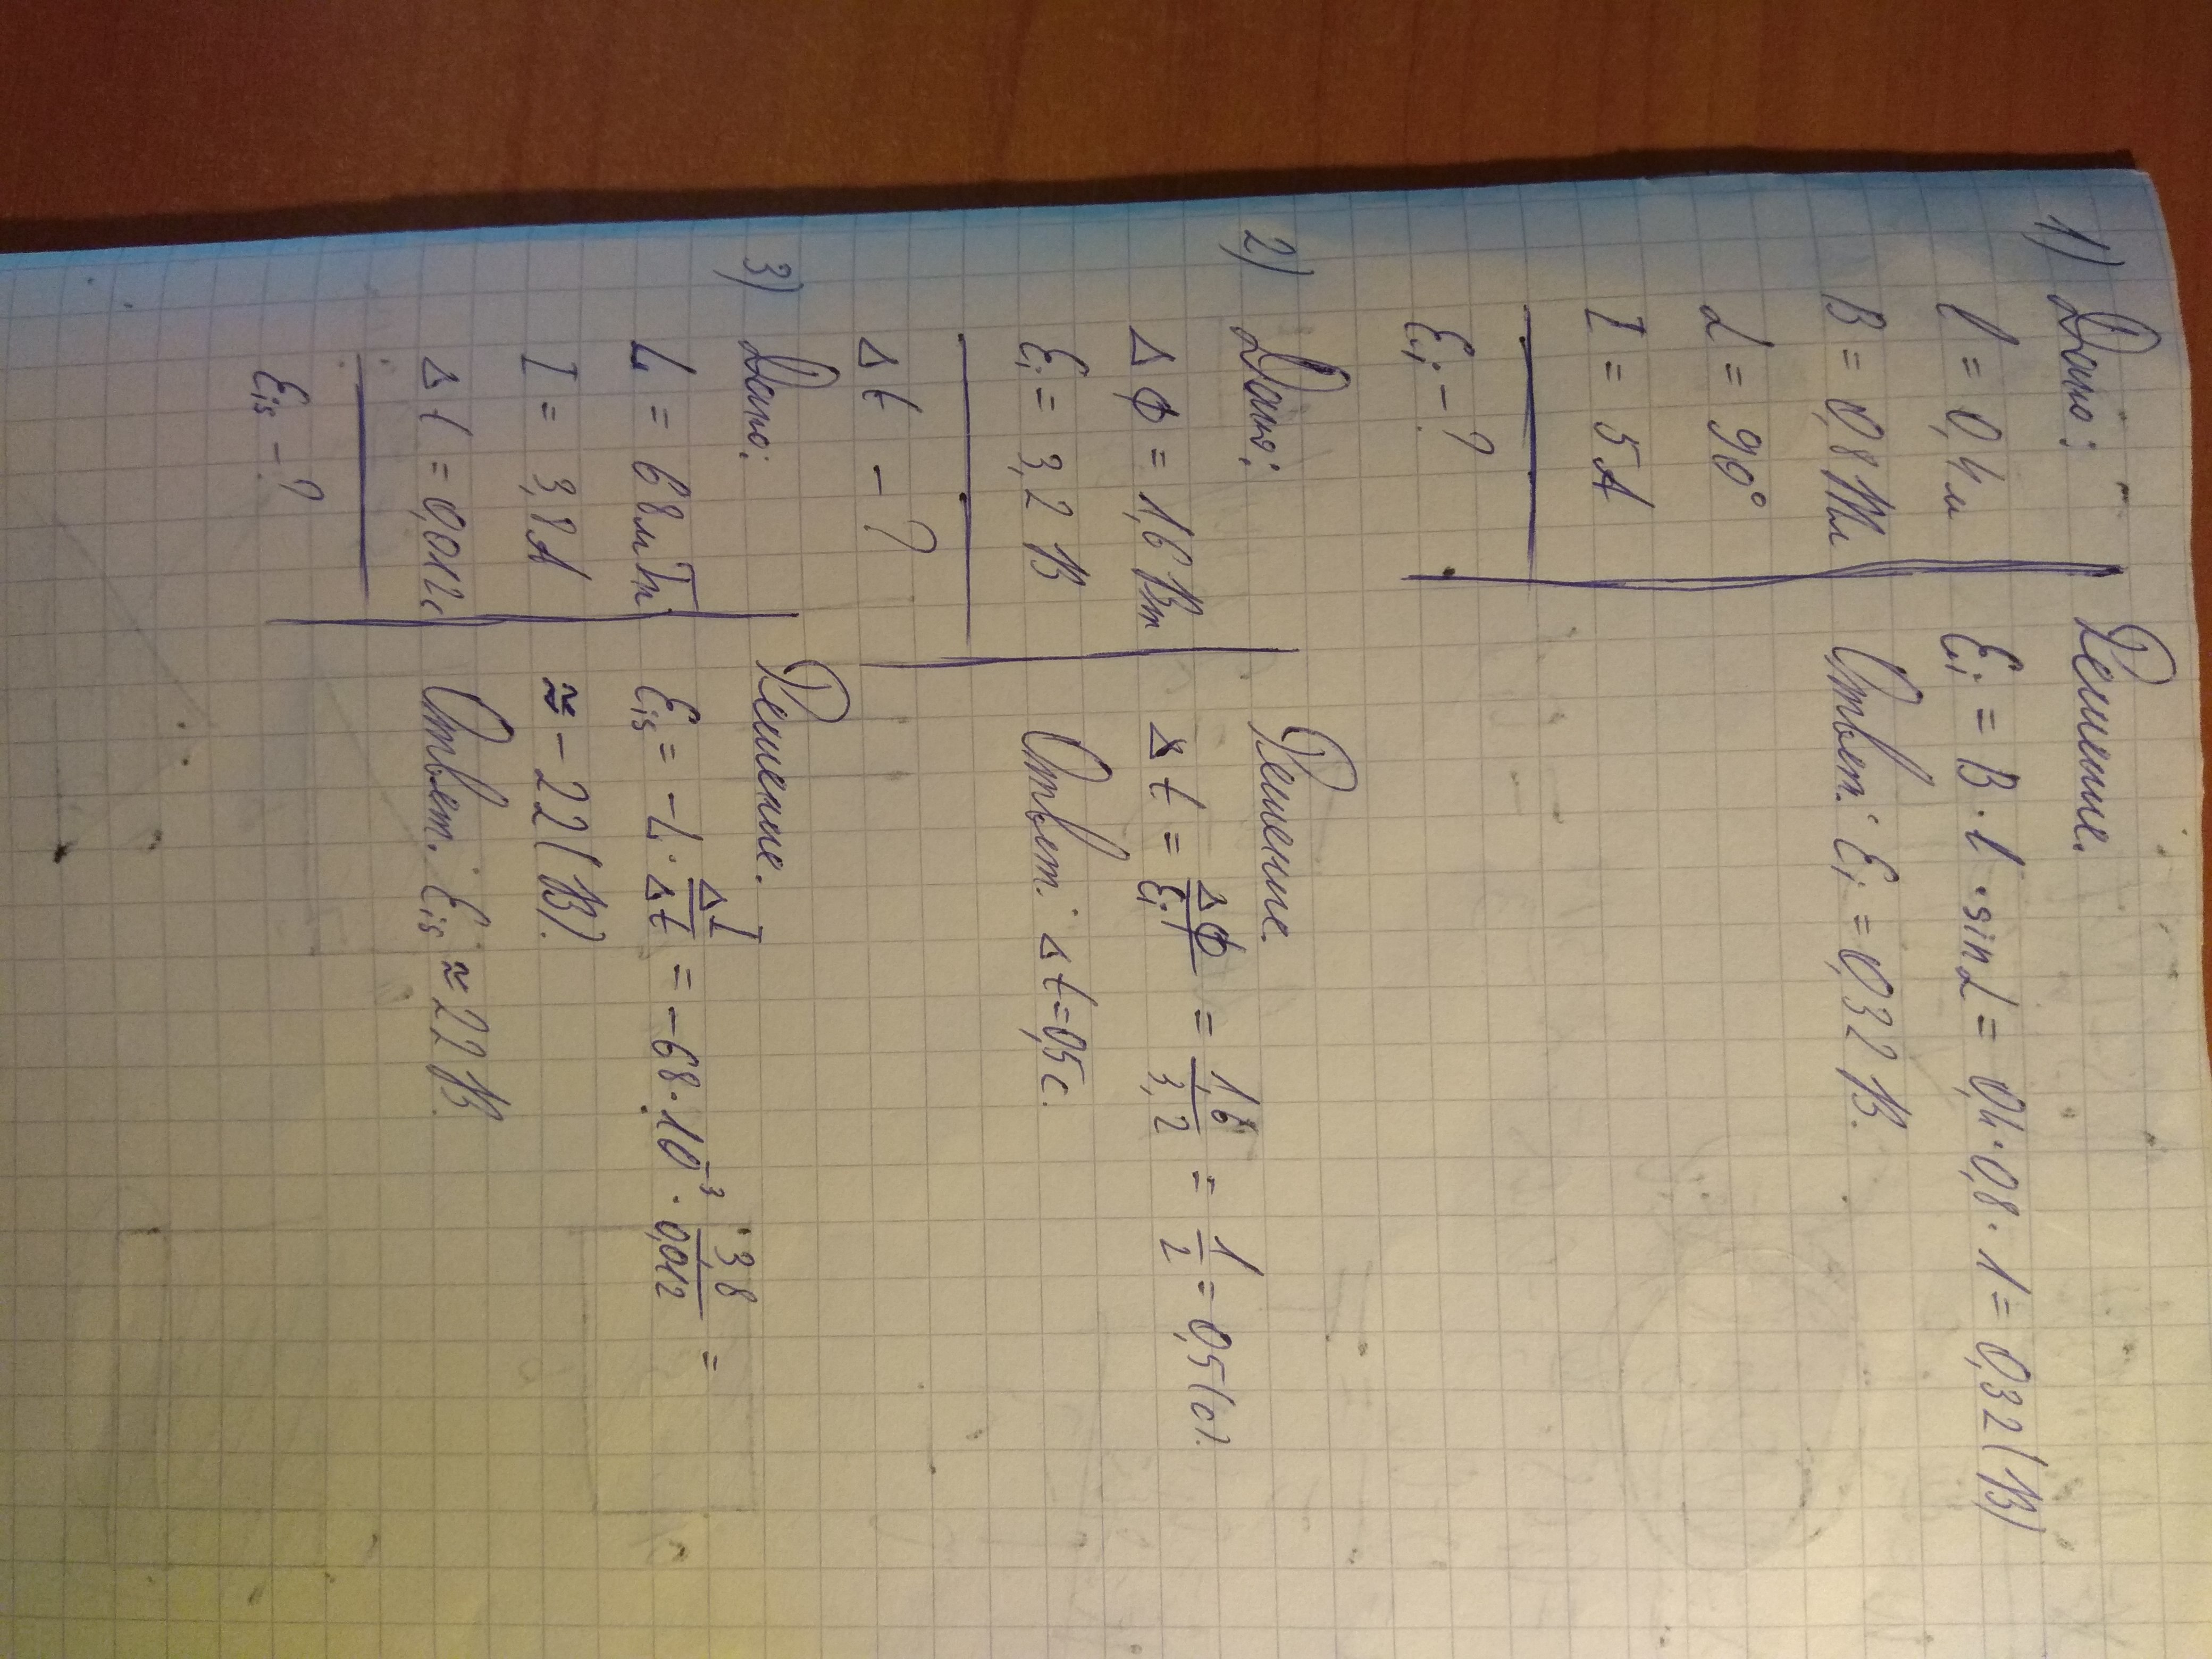 1) Дано:
l = 0,4 м
B = 0,8 Тл
α = 90°
I = 5 А
Ei - ?
Решение.
Ei = B · l · sin α = 0,4 · 0,8 · 1 = 0,32 (В)
Ответ: Ei = 0,32 В.
2) Дано:
Δ Ф = 1,6 Вт
Ei = 3,2 В
Δ t - ?
Решение.
Δ t = ΔФ/Ei = 1,6/3,2 = 1/2 = 0,5 (с).
Ответ: Δ t = 0,5 с.
3) Дано:
L = 68 мГн
I = 3,8 А
Δ t = 0,012с
Eis - ?
Решение.
Eis = -L · ΔI/Δt = -68 · 10⁻³ · 3,8/0,012 =
≈ -22 (В).
Ответ: Eis ≈ 22 В.